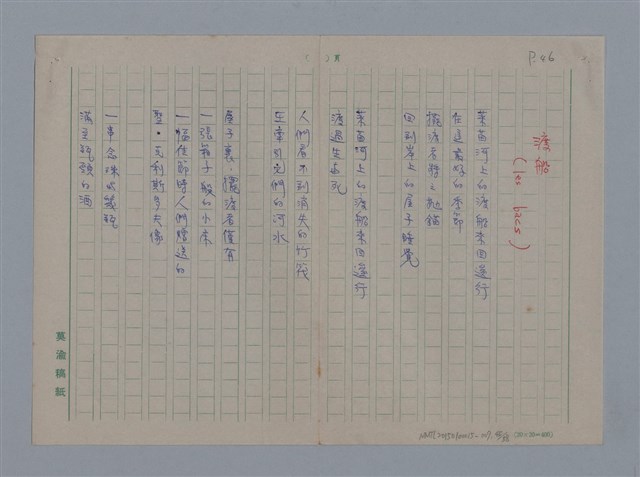 P.46
渡船
(les bacs)
萊茵河上的渡船來回運行
在這美好的季節
擺渡者靜之拋錨
回到岸上的屋子睡覺
萊茵河上的渡船來回運行
渡過生與死
人們看不到消失的竹筏
在牽引它們的河水
屋子裏,擺渡者僅有
一張箱子般的小床
一幅佳節時人們贈送的
聖·克利斯多夫像
一串念珠
滿至瓶頸的酒
莫渝稿紙